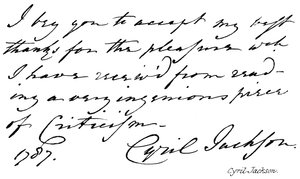 I beg you to accept my best
thanks for the pleasure wch
I have receiv'd from read-
ing a very ingenious piece
of Criticism-
1787. Cyril Jackson
Cyril Jackson.